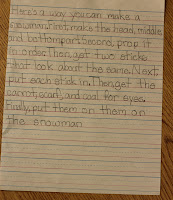 Here's a way you can make a
snowman. First, make the head, middle,
and bottom part. Second, prop it
in order. Then, get two sticks
that look about the same. Next,
put each stick in. Then get the
carrot, scarf, and coal for eyes.
Finally, put them on them on
the snowman